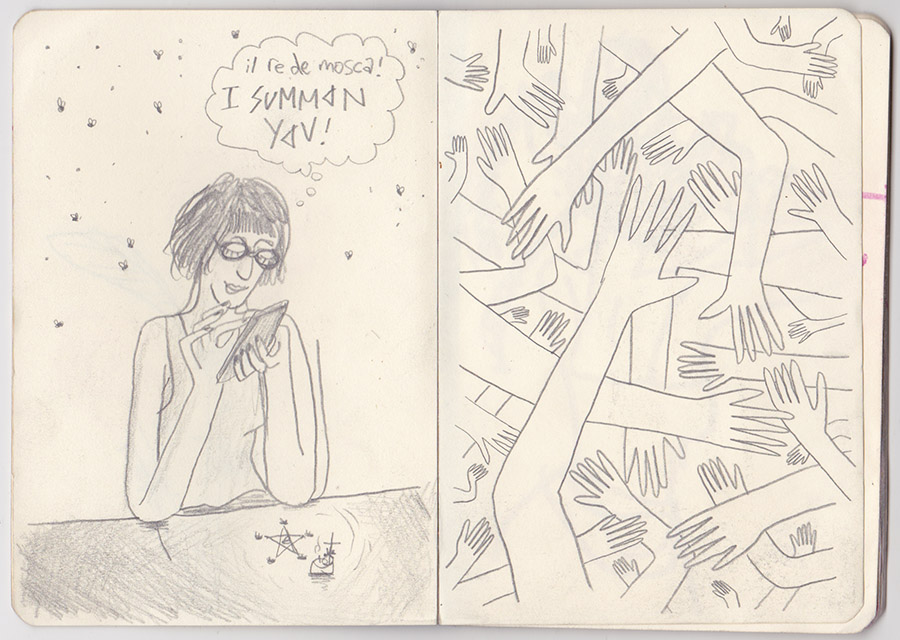 il re de mosca!
I SUMMON
YOU!